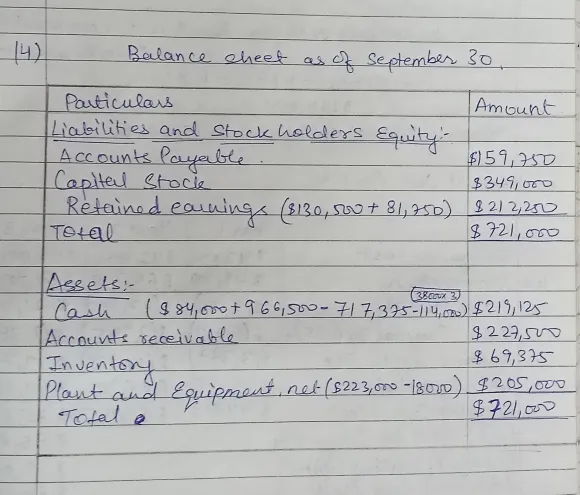 (4) Balance sheet as of September 30.
Particulars Amount
Liabilities and Stockholders Equity:-
Accounts Payable. $159,750
Capital Stock $349,000
Retained earnings ($130,500 + 81,750) $212,250
Total $721,000
Assets:-
38000x3
Cash ($84,000+966,500-717,375-114,000) $219,125
Accounts receivable $227,500
Inventory $69,375
Plant and Equipment, net ($223,000-18000) $205,000
Total $721,000